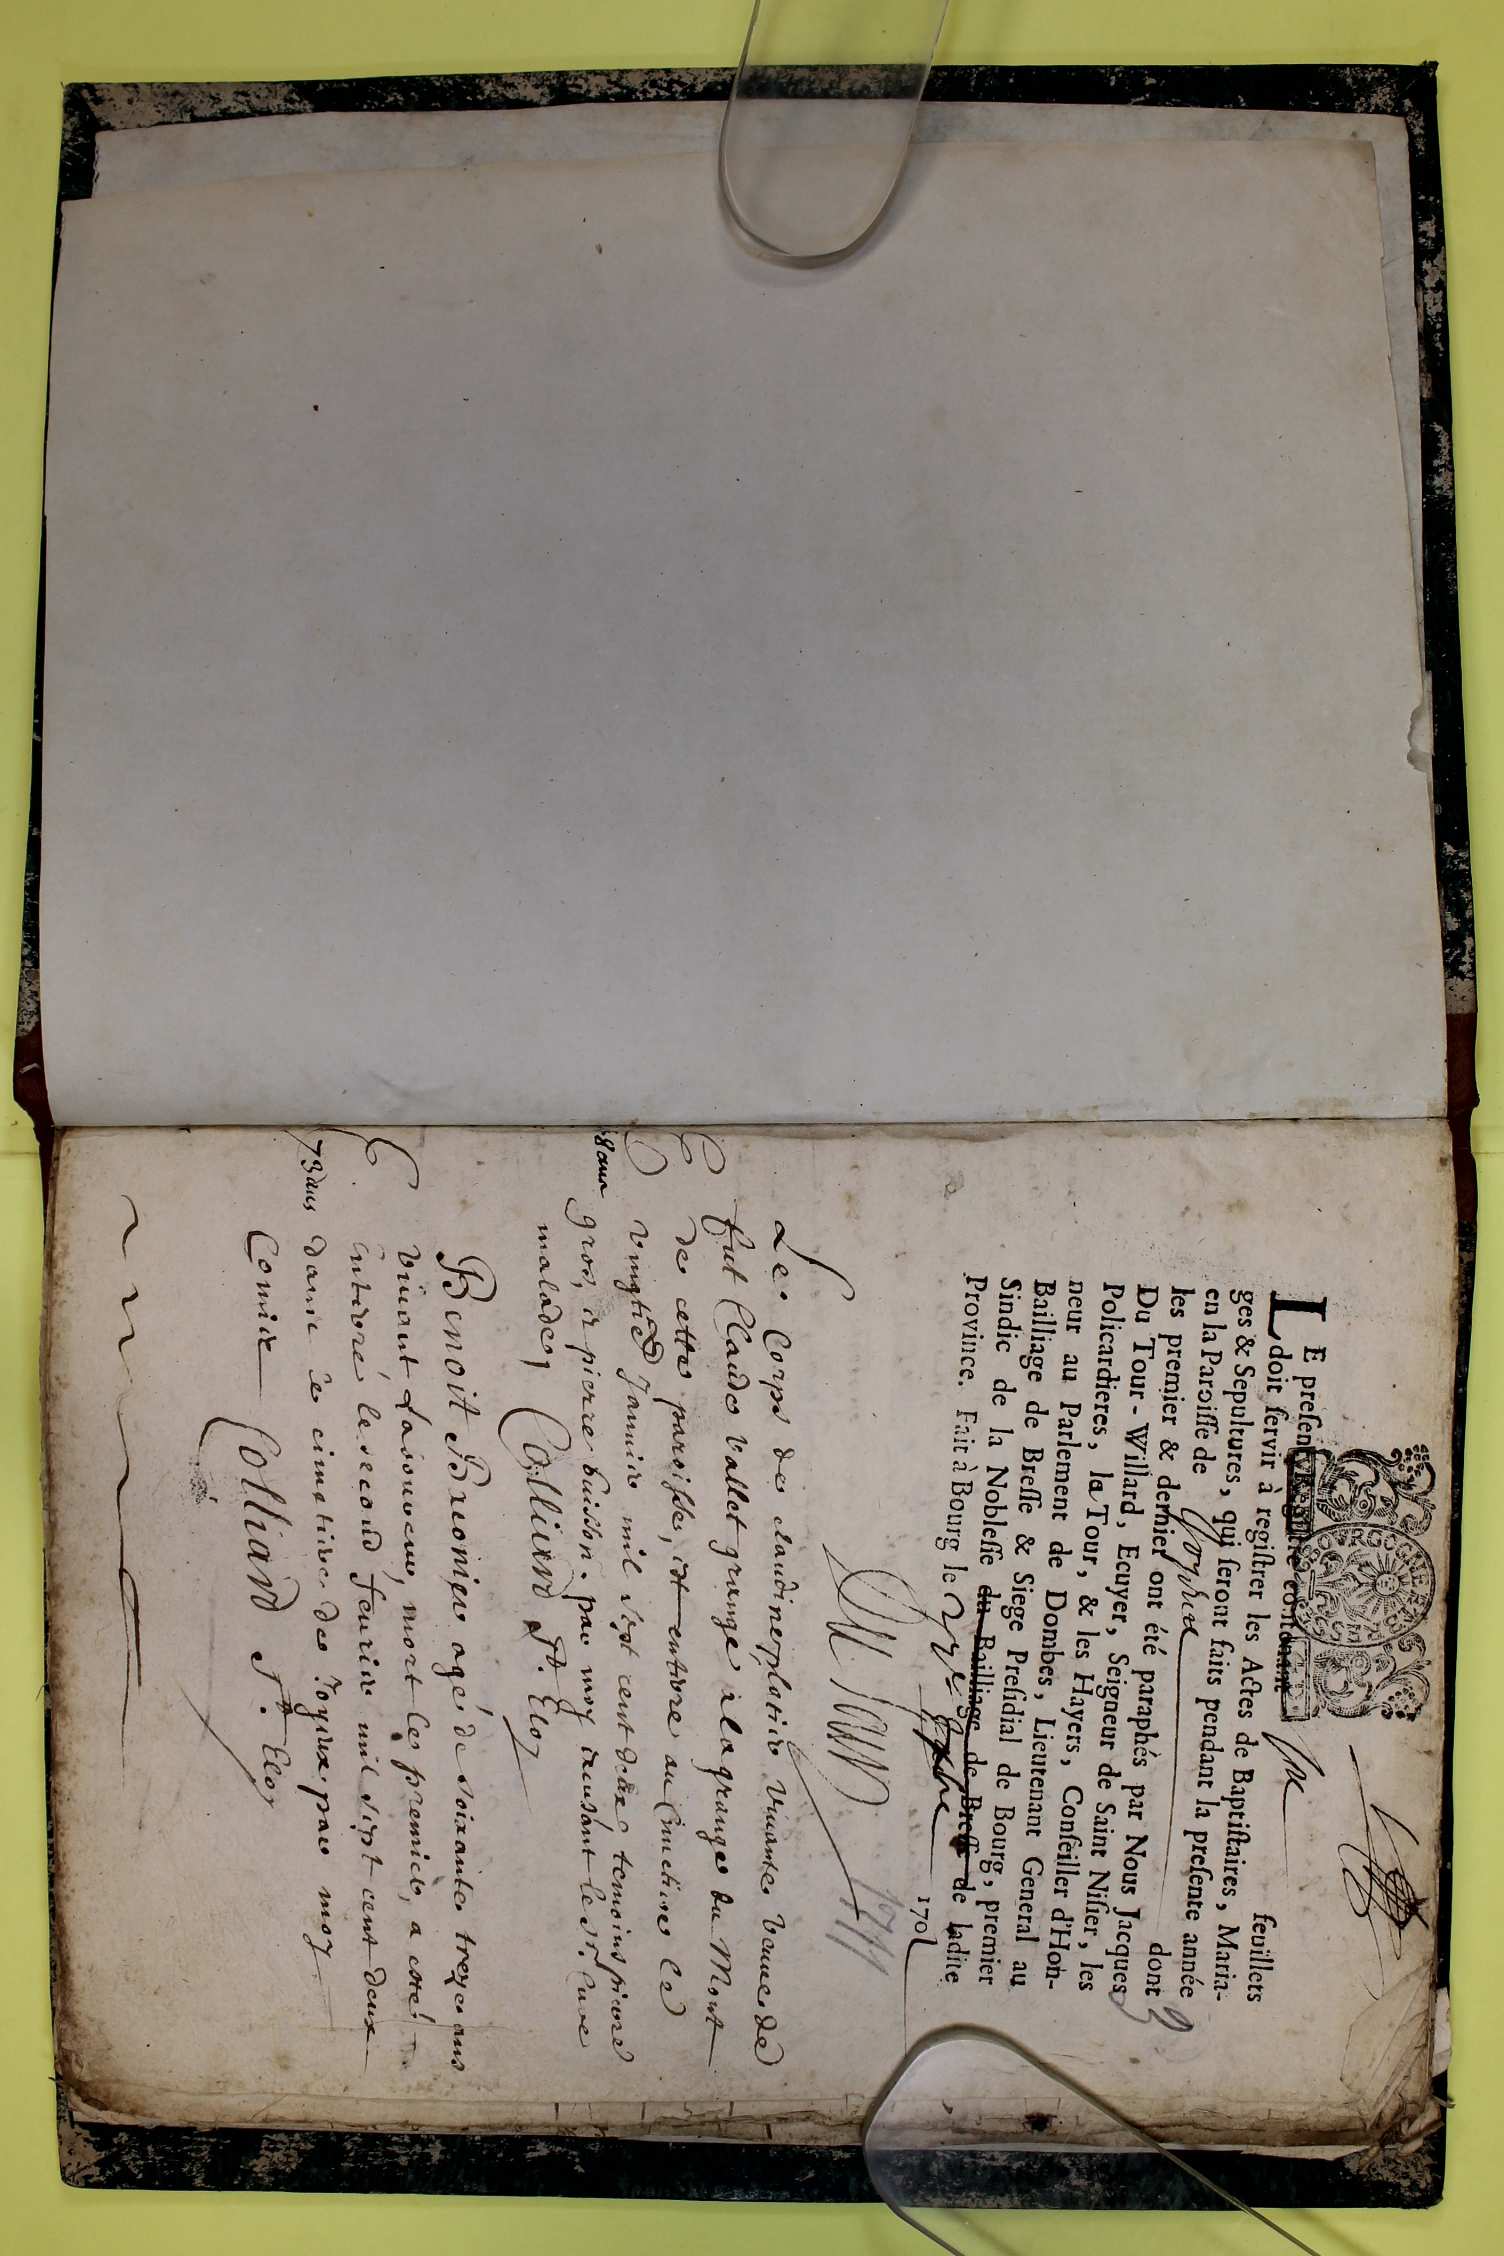 LE preſent Regiſtre contenant Six feuillets
doit ſervir à regiſtrer les Actes de Baptiſtaires, Maria-
ges & Sepultures, qui ſeront faits pendant la preſente année
en la Paroiſſe de Joyeux
les premier & dernier ont été paraphés par Nous Jacques
Du Tour-Willard, Ecuyer, Seigneur de Saint Niſier, les
Policardieres, la Tour, & les Hayers, Conſeiller d'Hon-
neur au Parlement de Dombes, Lieutenant General au
Bailliage de Breſſe & Siege Preſidial de Bourg, premier
Sindic de la Nobleſſe du Bailliage de Breſſe de ladite
Province. Fait à Bourg le 1702
Le Corps de claudine ploticr vivante veuve de
fut Claude vallet granger a la grange du Mont
de cette paroisse, est enterre au Cimetiere le
vingtie Janvier mil sept cent deux temoins pierre
58 ans
gros, et pierre buisson. par moy excusant le sr. Cure
malade, Colliard P. Eloy
Benoit agé de soixante treze ans
vivant laboureur, mort le premier, a eté
enterré le second feurier mil sept cent deux
73 ans
dans le cimetiere de Joyeux par moy
Comis Colliard P. Eloy